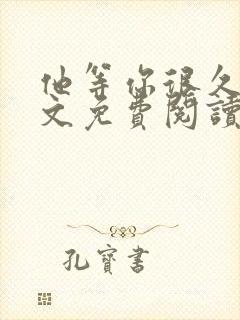 他等你很久
文免費閱讀
孔寶書